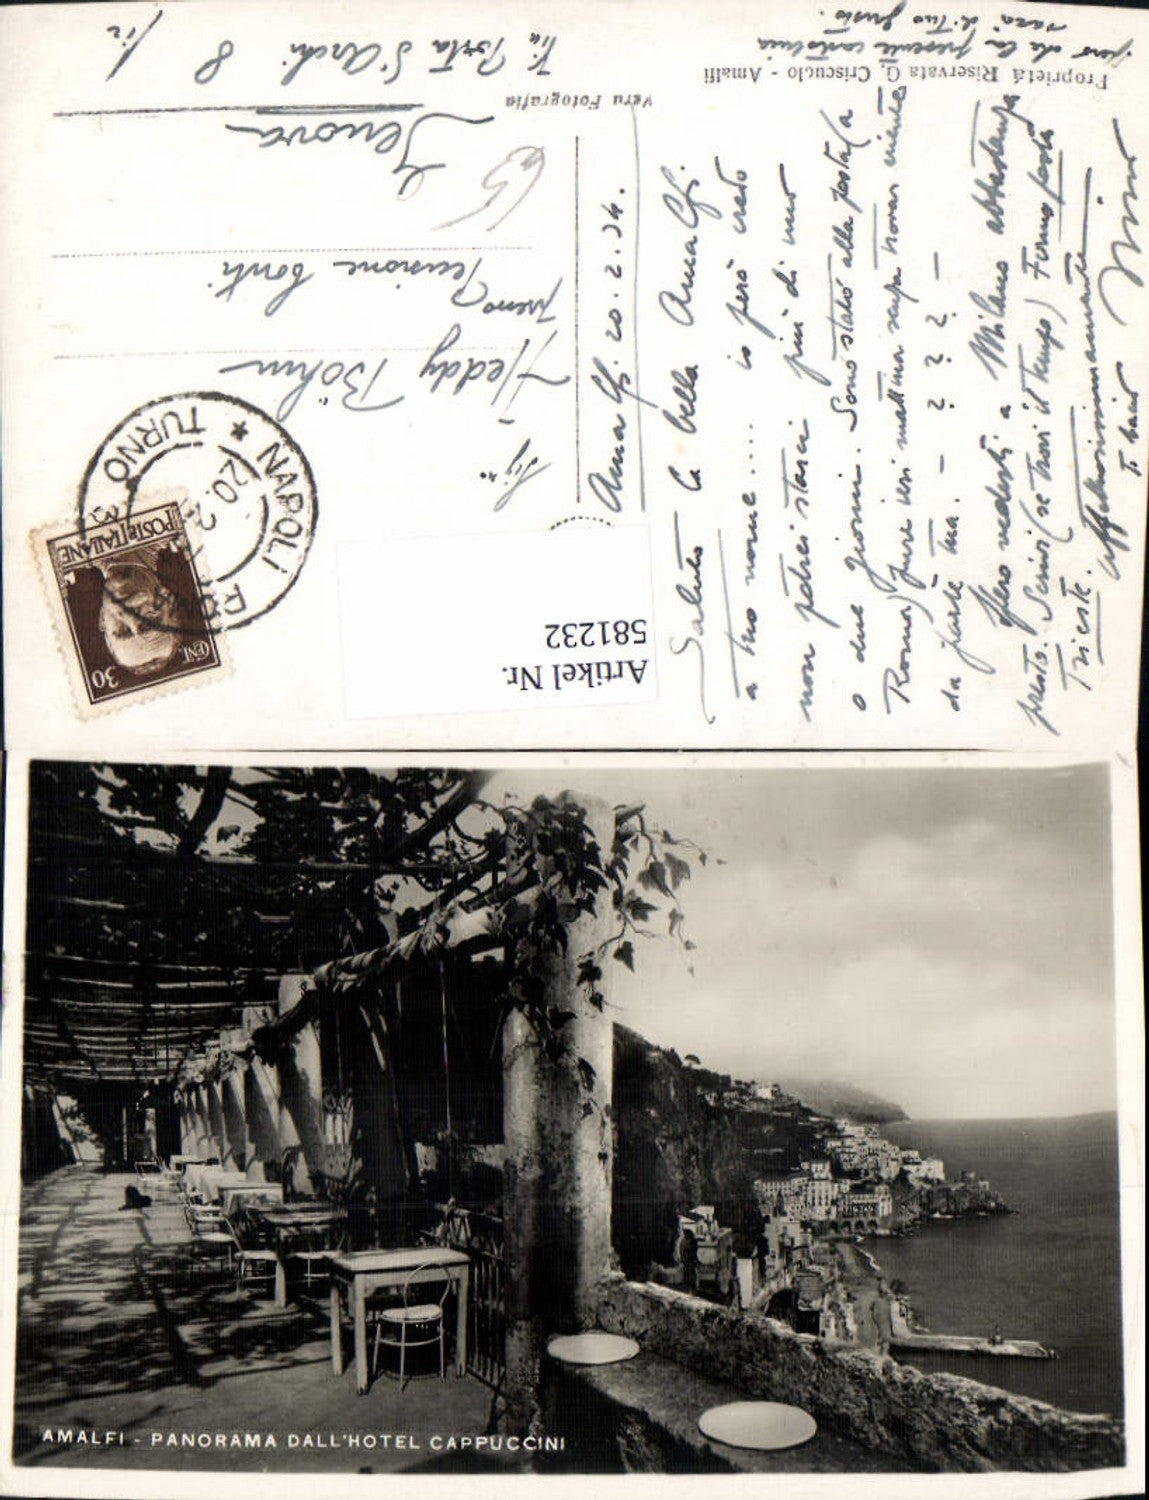 Proprietá Riservata G. Criscuolo - Amalfi
Vera Fotografia
Amalfi. 20.2.34.
Saluto la bella Amalfi
a tuo nome.... io però credo
non potrei starci più di uno
o due giorni. Sono stato alla posta (a
Roma) pure ieri mattina senza trovar niente
da parte tua. - ? ? ? -
Spero vederti a Milano abbastanza
presto. Scrivi (se trovi il tempo) fermo posta
Trieste.
affettuosissimamente
Ti bacio
Nino
spero che la presente cartolina
sarà di tuo gusto.
Heddy Böhm
presso Pensione Conti
Genova
Via Porta d'Archi 8
65
POSTE ITALIANE
CENT. 30
NAPOLI
TURNO
20.2
Artikel Nr.
581232
AMALFI - PANORAMA DALL'HOTEL CAPPUCCINI